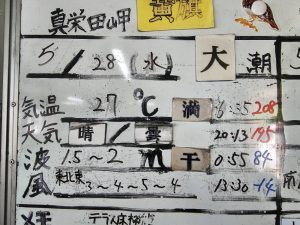 真栄田岬
黄旗
5/28(水) 大潮
気温 27℃ 満 6:55 208
天気 晴/曇 20:13 195
波 1.5～2m 干 0:55 84
風 東北東 3～4～5～4 13:30 -14